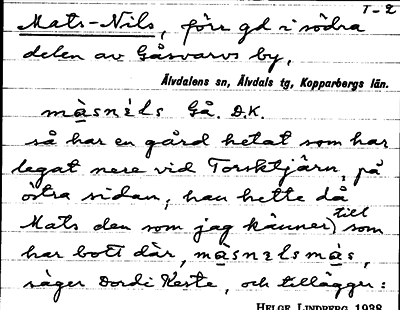 T-2
Mats-Nils, förr gd i södra
delen av Gåsvarvs by,
Älvdalens sn, Älvdals tg, Kopparbergs län.
màsnɛ́ls Gå. D.K.
så har en gård hetat som har
legat nere vid Torsktjärn, på
östra sidan, han hette då
Mats den som jag känner till) som
har bott där, màsnɛlsmàs,
säger Dordi Keste, och tillägger:
HELGE LINDBERG 1938